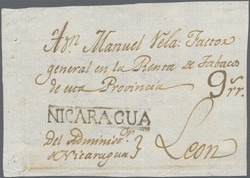 A Dn Manuel Vela: Factor
general en la Renta de Tabaco
de esta Provincia
9 rr.
NICARAGUA
del Administ.or
Nicaragua
Leon